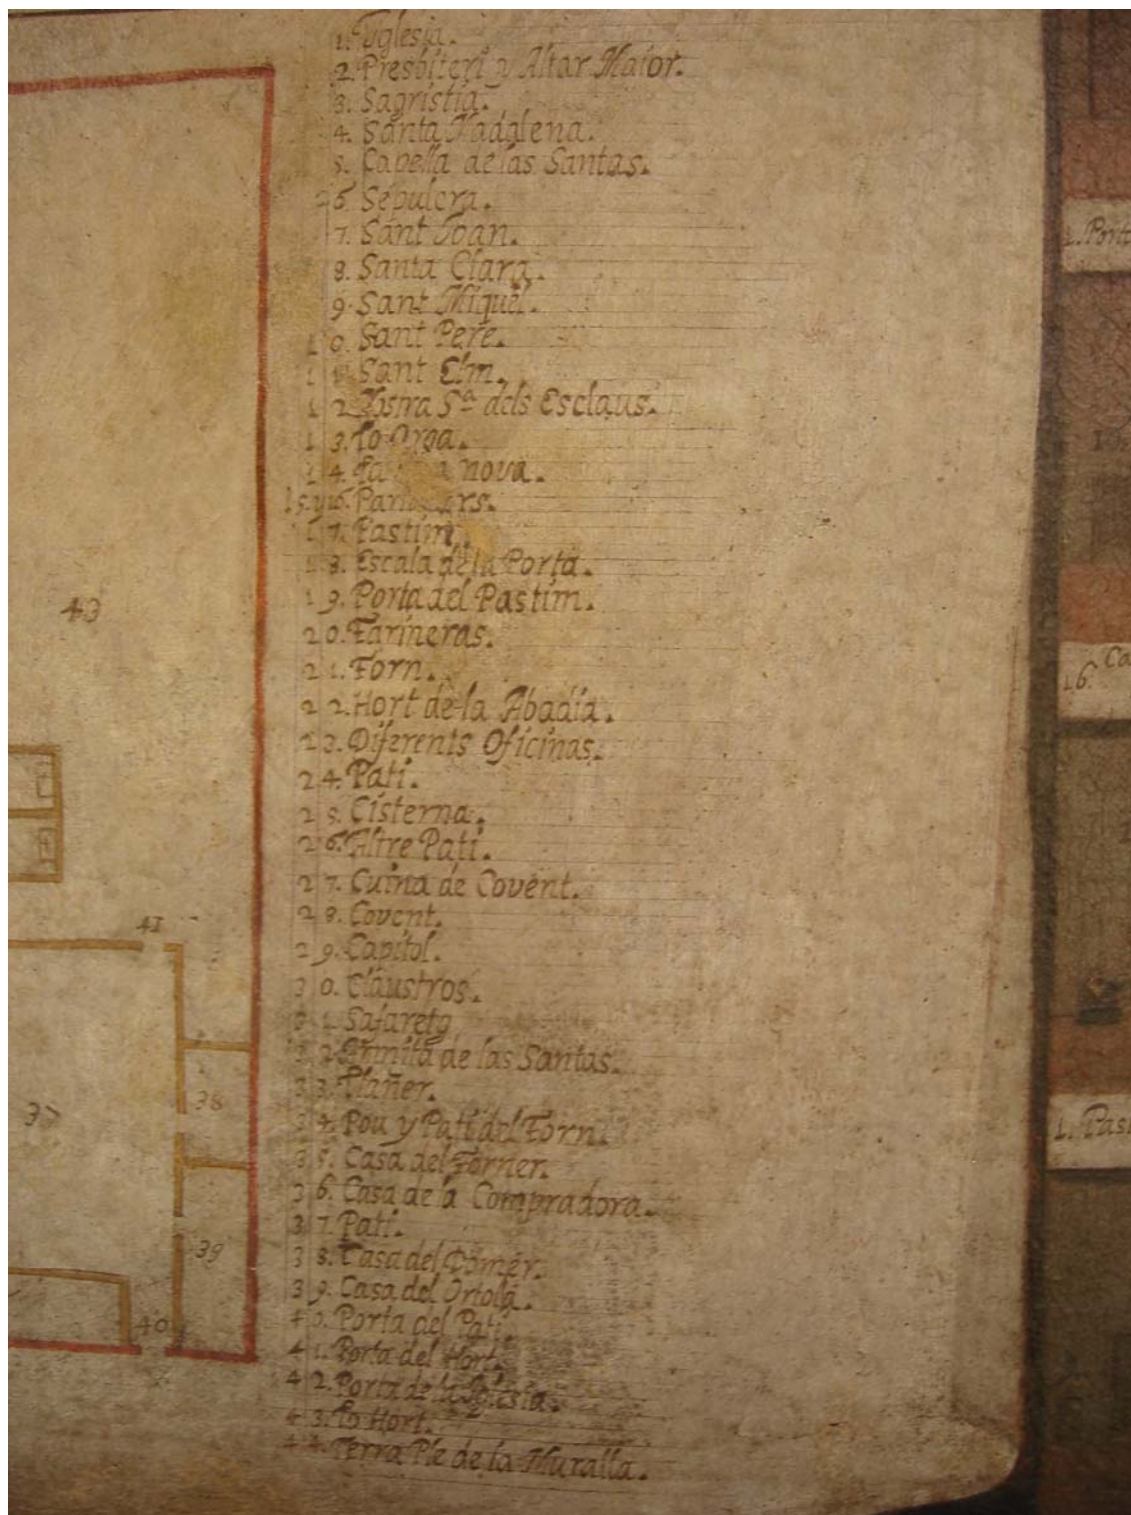 1. Yglesia.
2. Presbiteri y Altar Maior.
3. Sagristia.
4. Santa Madalena.
5. Capella de las Santas.
6. Sepulcra.
7. Sant Joan.
8. Santa Clara.
9. Sant Miquel.
10. Sant Pere.
11. Sant Elm.
12. Nostra Sª dels Esclaus.
13. Lo Orga.
14. nova.
15. y 16.
17. Pastim.
18. Escala de la Porta.
19. Porta del Pastim.
20. Farineras.
21. Forn.
22. Hort de la Abadia.
23. Diferents Oficinas.
24. Pati.
25. Cisterna.
26. Altre Pati.
27. Cuina de Covent.
28. Covent.
29. Capitol.
30. Claustros.
31. Safaretg
32. Armita de las Santas.
33. Plañer.
34. Pou y Pati del Forn.
35. Casa del Forner.
36. Casa de la Compradora.
37. Pati.
38. Casa del Domer.
39. Casa del Ortola.
40. Porta del Pati.
41. Porta del Hort.
42. Porta de la Iglesia.
43. Lo Hort.
44. Terra Ple de la Muralla.
43
41
37
38
39
40
1. Port
16. Ca
1. Pas